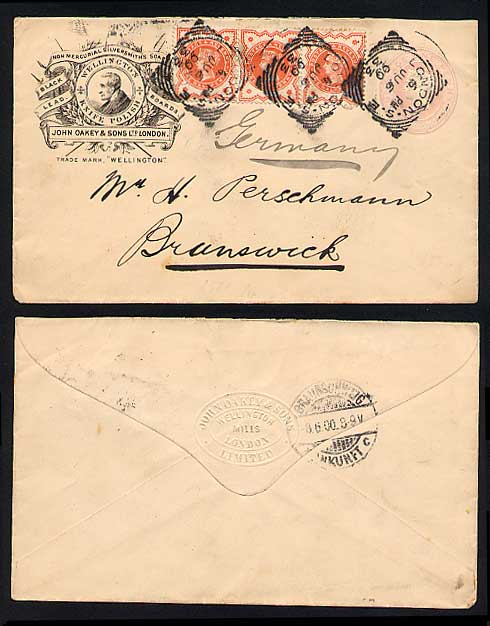 NON-MERCURIAL SILVERSMITHS SOAP
WELLINGTON
BLACK
LEAD
BOARDS
KNIFE POLISH
JOHN OAKEY & SONS LTD LONDON.
TRADE MARK, "WELLINGTON"
LONDON. S.E
JU 6
Germany
Mr H. Perschmann
Brunswick
JOHN OAKEY & SONS
WELLINGTON
MILLS
LONDON
LIMITED
BRAUNSCHWEIG
8.6.00. 8-9V
ANKUNFT C